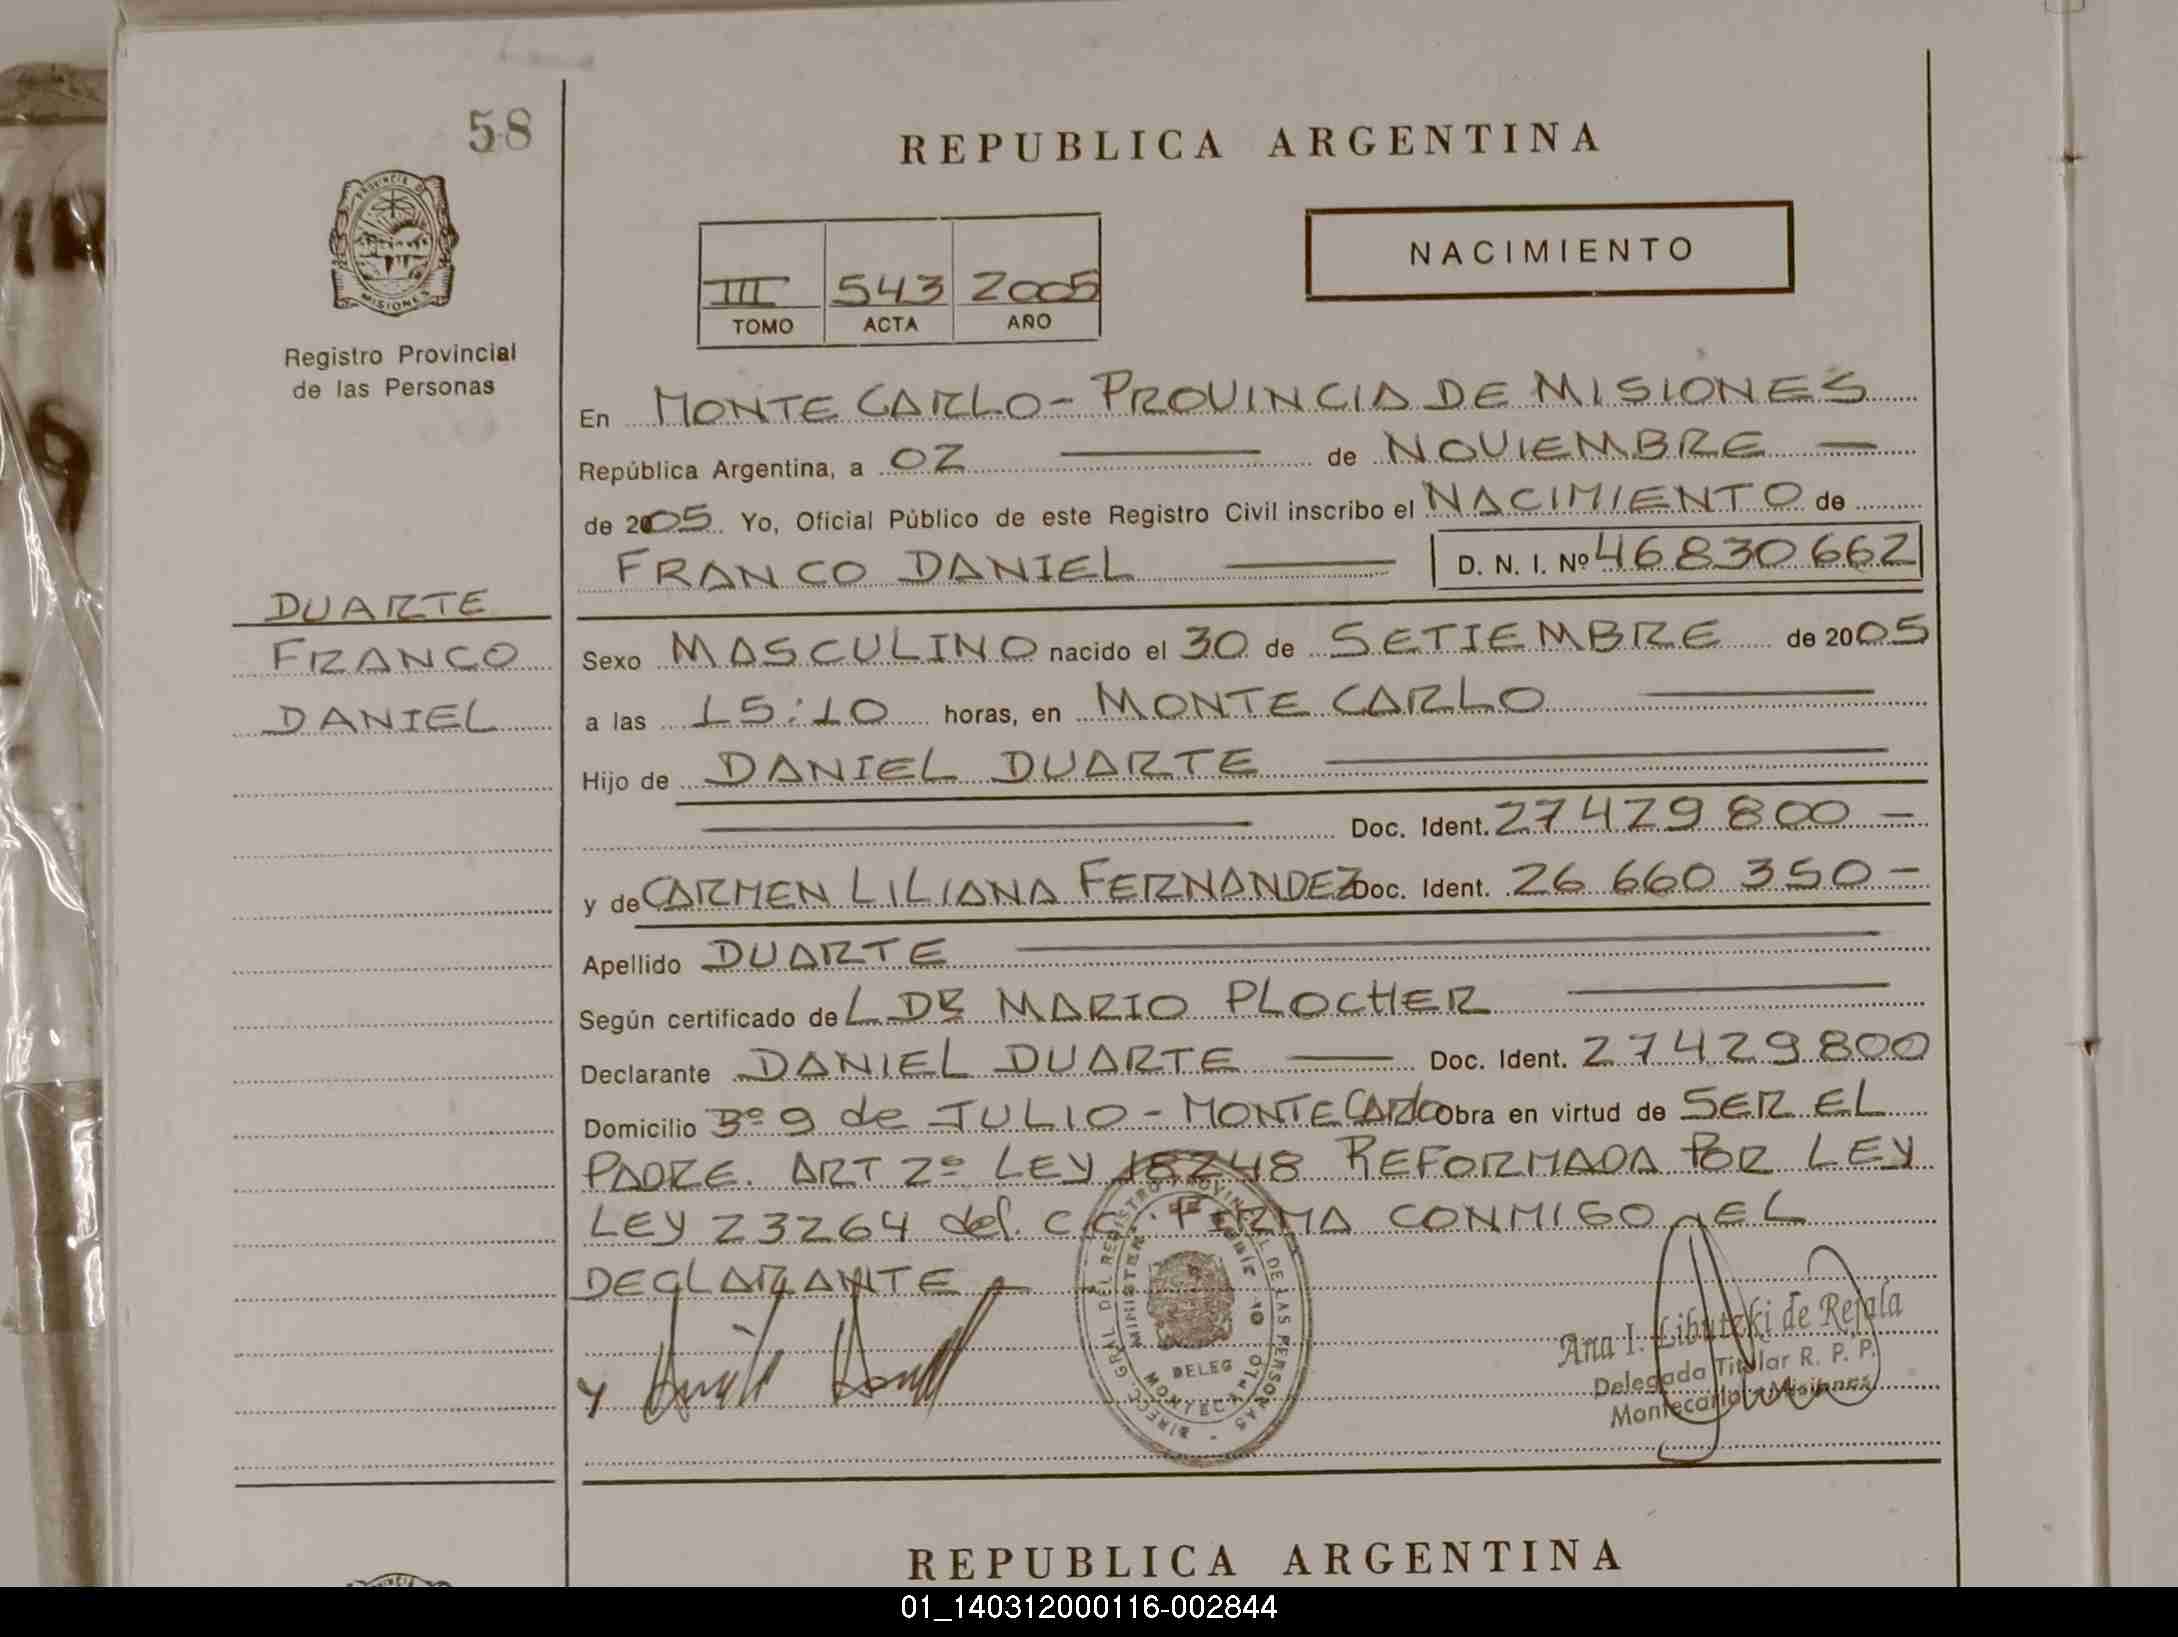 58
REPUBLICA ARGENTINA
PROVINCIA DE
MISIONES
Registro Provincial
de las Personas
NACIMIENTO
III 543 2005
TOMO ACTA AÑO
En MONTE CARLO - PROVINCIA DE MISIONES
República Argentina, a 02 de NOVIEMBRE
de 2005 Yo, Oficial Público de este Registro Civil inscribo el NACIMIENTO de
FRANCO DANIEL D. N. I. Nº 46830662
DUARTE
FRANCO
DANIEL
Sexo MASCULINO nacido el 30 de SETIEMBRE de 2005
a las 15:10 horas, en MONTE CARLO
Hijo de DANIEL DUARTE
Doc. Ident. 27429800 -
y de CARMEN LILIANA FERNANDEZ Doc. Ident. 26 660 350 -
Apellido DUARTE
Según certificado de L DR MARIO PLOCHER
Declarante DANIEL DUARTE Doc. Ident. 27429800
Domicilio Bº 9 de JULIO - MONTECARLO Obra en virtud de SER EL
PADRE. ART 2º LEY 18248 REFORMADA POR LEY
LEY 23264 del C.C. FIRMA CONMIGO EL
DECLARANTE
DIRECC. GRAL. DEL REGISTRO PROVINCIAL DE LAS PERSONAS
DELEG
MONTECARLO
Ana I. Libutzki de Rejala
Delegada Titular R. P. P.
Montecarlo - Misiones
REPUBLICA ARGENTINA
01_140312000116-002844